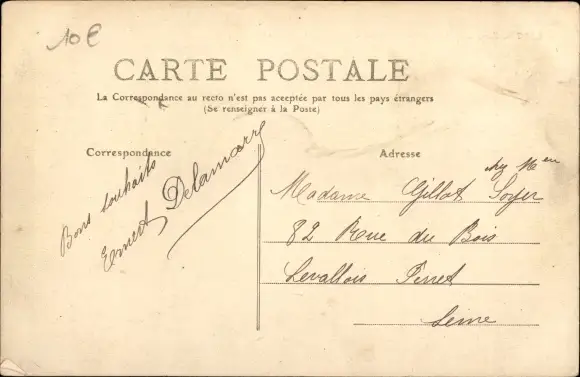 10€
CARTE POSTALE
La Correspondance au recto n'est pas acceptée par tous les pays étrangers
(Se renseigner à la Poste)
Correspondance
Bons souhaits
Ernest Delamarre
Adresse
chez Mr
Madame Gillot Soyer
82 Rue du Bois
Levallois Perret
Seine